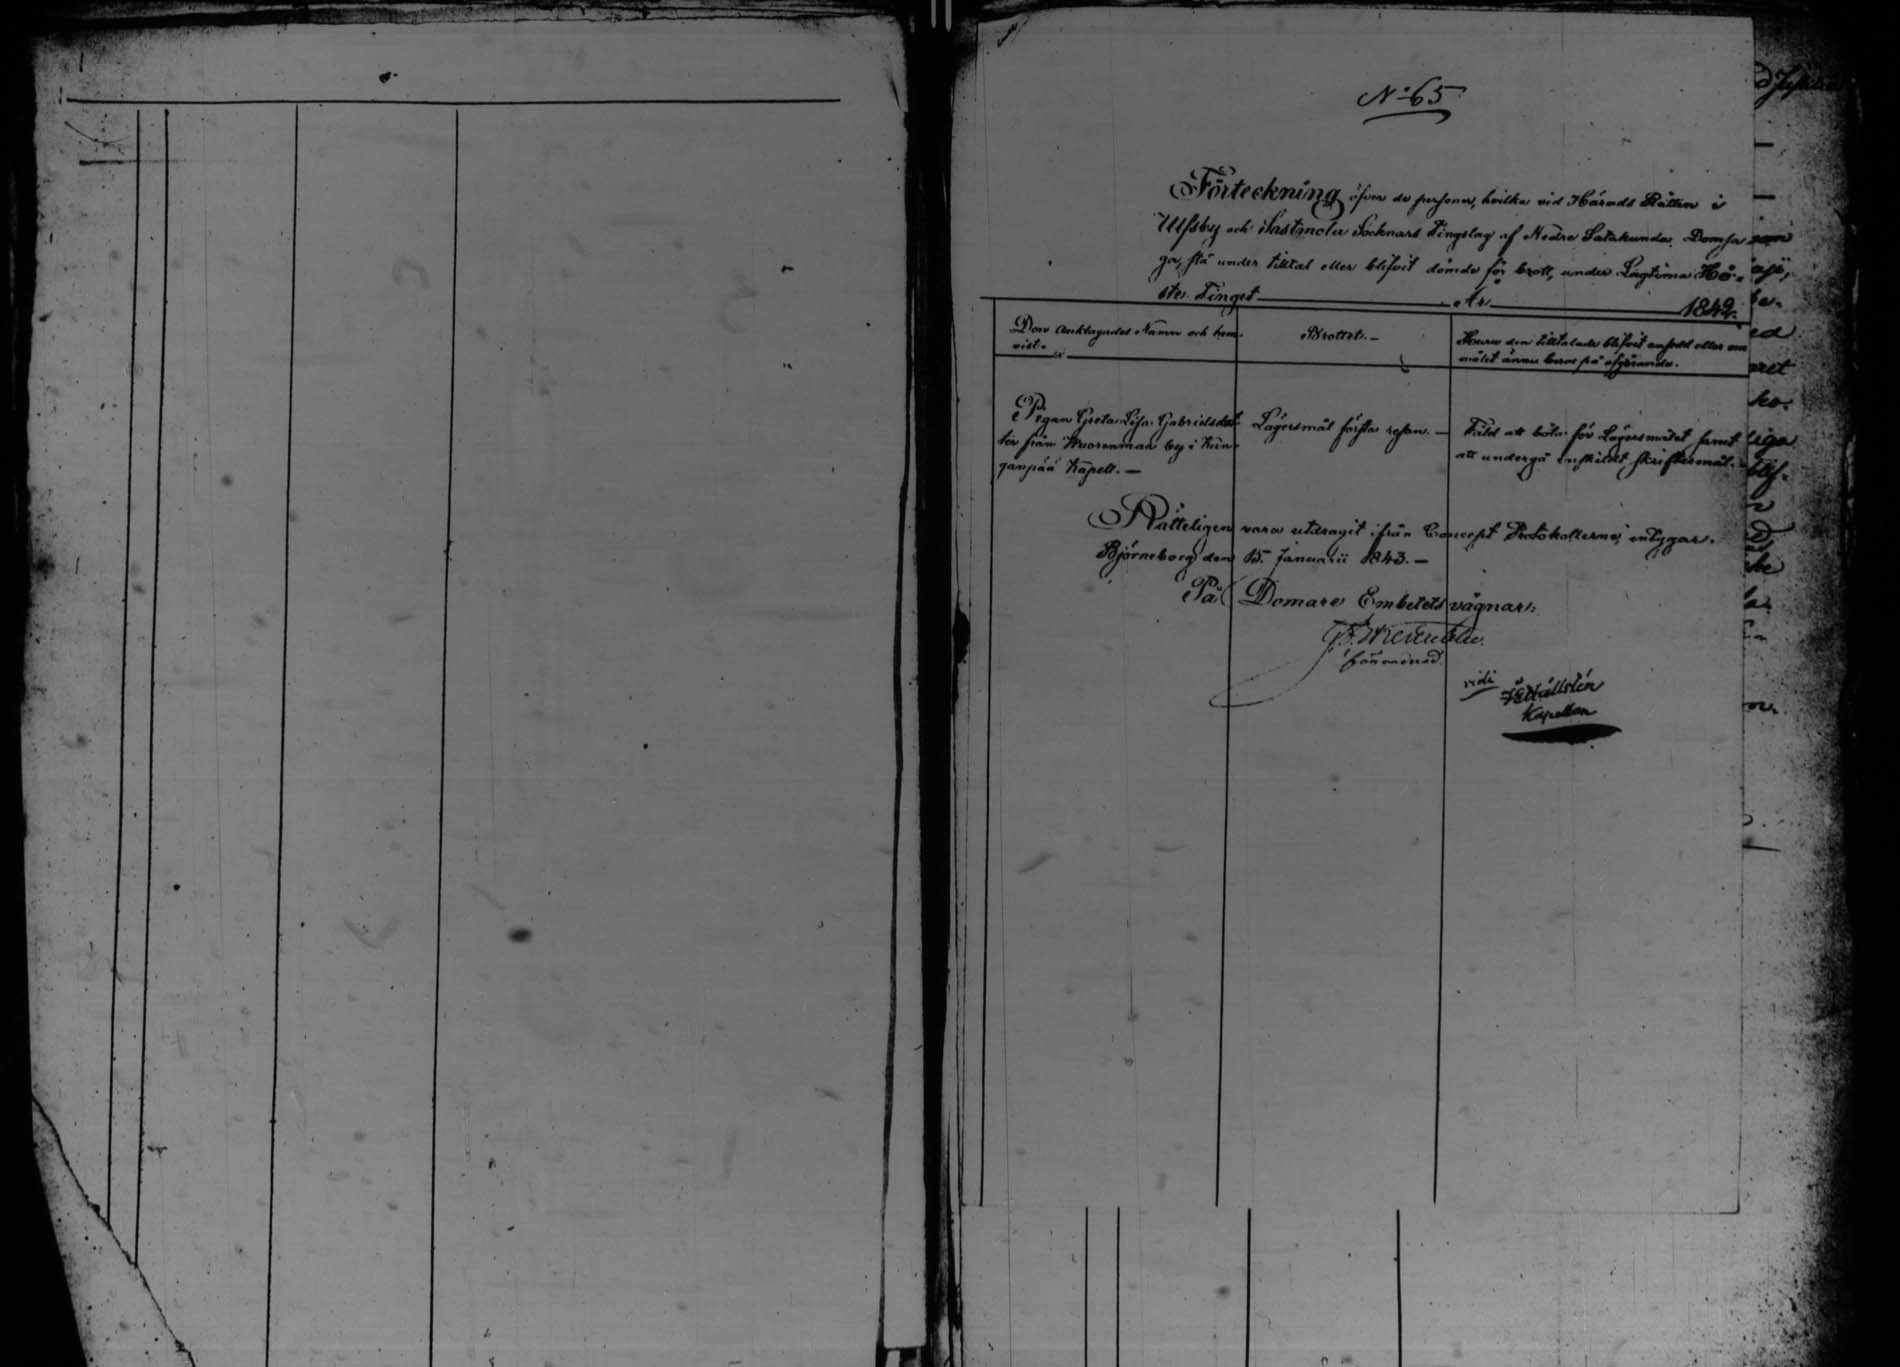 No 65
Förteckning öfver de personer, hvilka vid Härads Rätten i
Ulfsby och Sastmola Socknars Tingslag af Nedre Satakunda Domsa
ga, stå under tilltal eller blifvit dömde för brott, under Lagtima Hö-
ste Tinget År 1842.
Den Anklagades Namn och hem-
vist.
Brottet.
Huru den tilltalade blifvit ansedd eller om
målet ännu beror på afgörande.
Pigan Greta Lisa Gabrielsdot-
ter från Wuorenmaa by i Kan-
ganpää Kapell.
Lägersmål första resan.
Fäld att böta för Lägersmålet samt
att undergå enskildt skriftermål.
Rätteligen vara utdragit ifrån Concept Protokollerne, intygar.
Björneborg den 15 Januarii 1843.
På Domare Embetets vägnar:
förordnad.
vidi
Hällstén
Kapellan